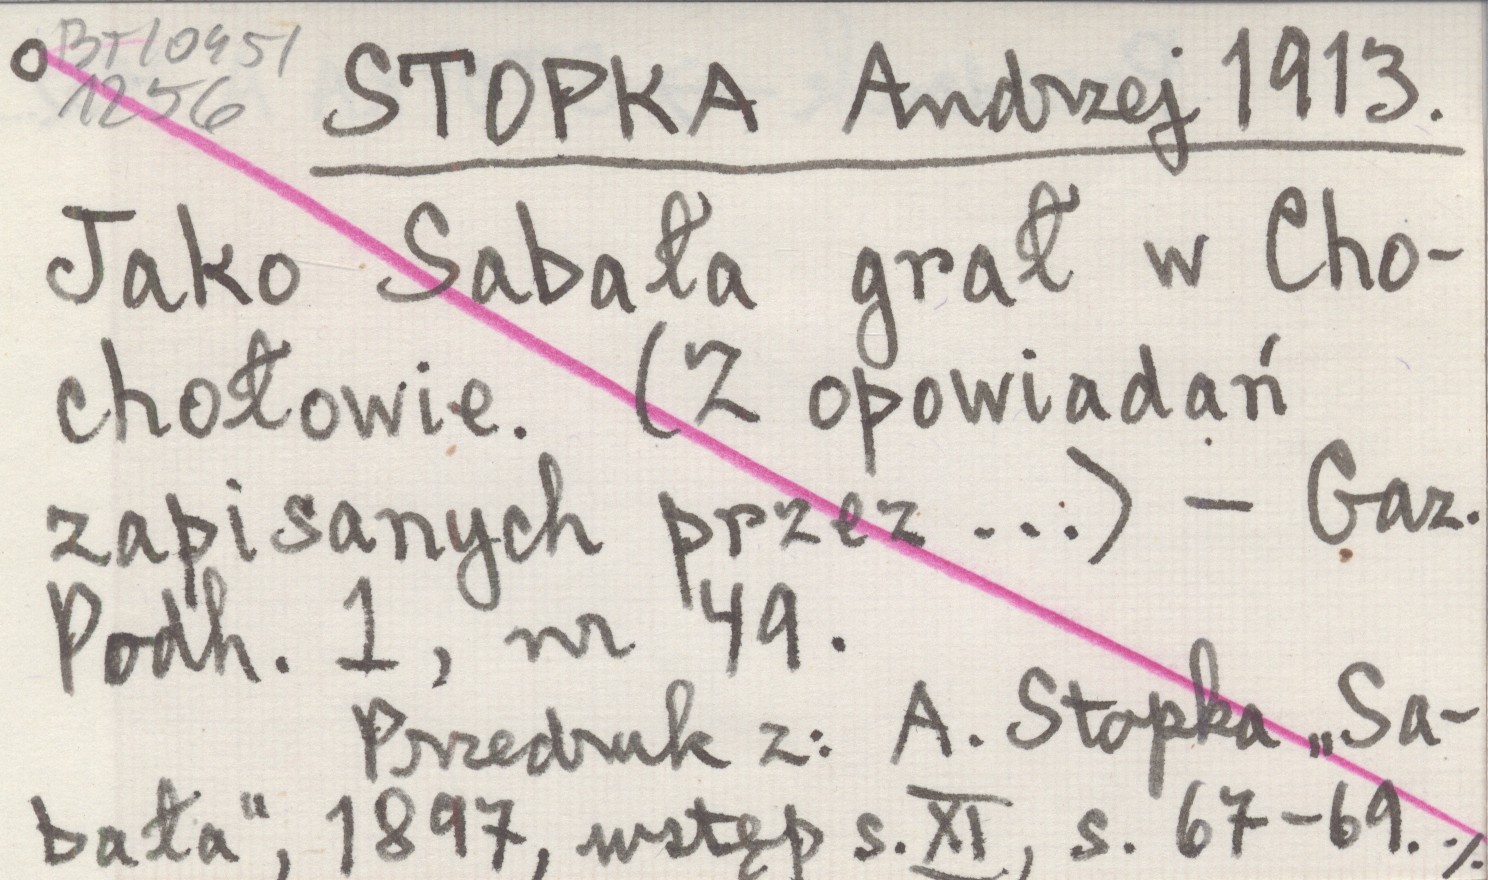 O BT10951
1256
STOPKA Andrzej 1913.
Jako Sabała grał w Cho-
chołowie. (Z opowiadań
zapisanych przez ...) - Gaz.
Podh. 1, nr 49.
Przedruk z: A. Stopka „Sa-
bała", 1897, wstęp s. XI, s. 67-69. ./.